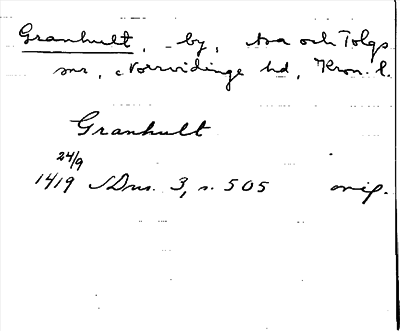 Granhult, by, Asa och Tolgs
snr, Norrvidinge hd, Kron. l.
Granhult
24/9
1419 SDns. 3, s. 505 orig.